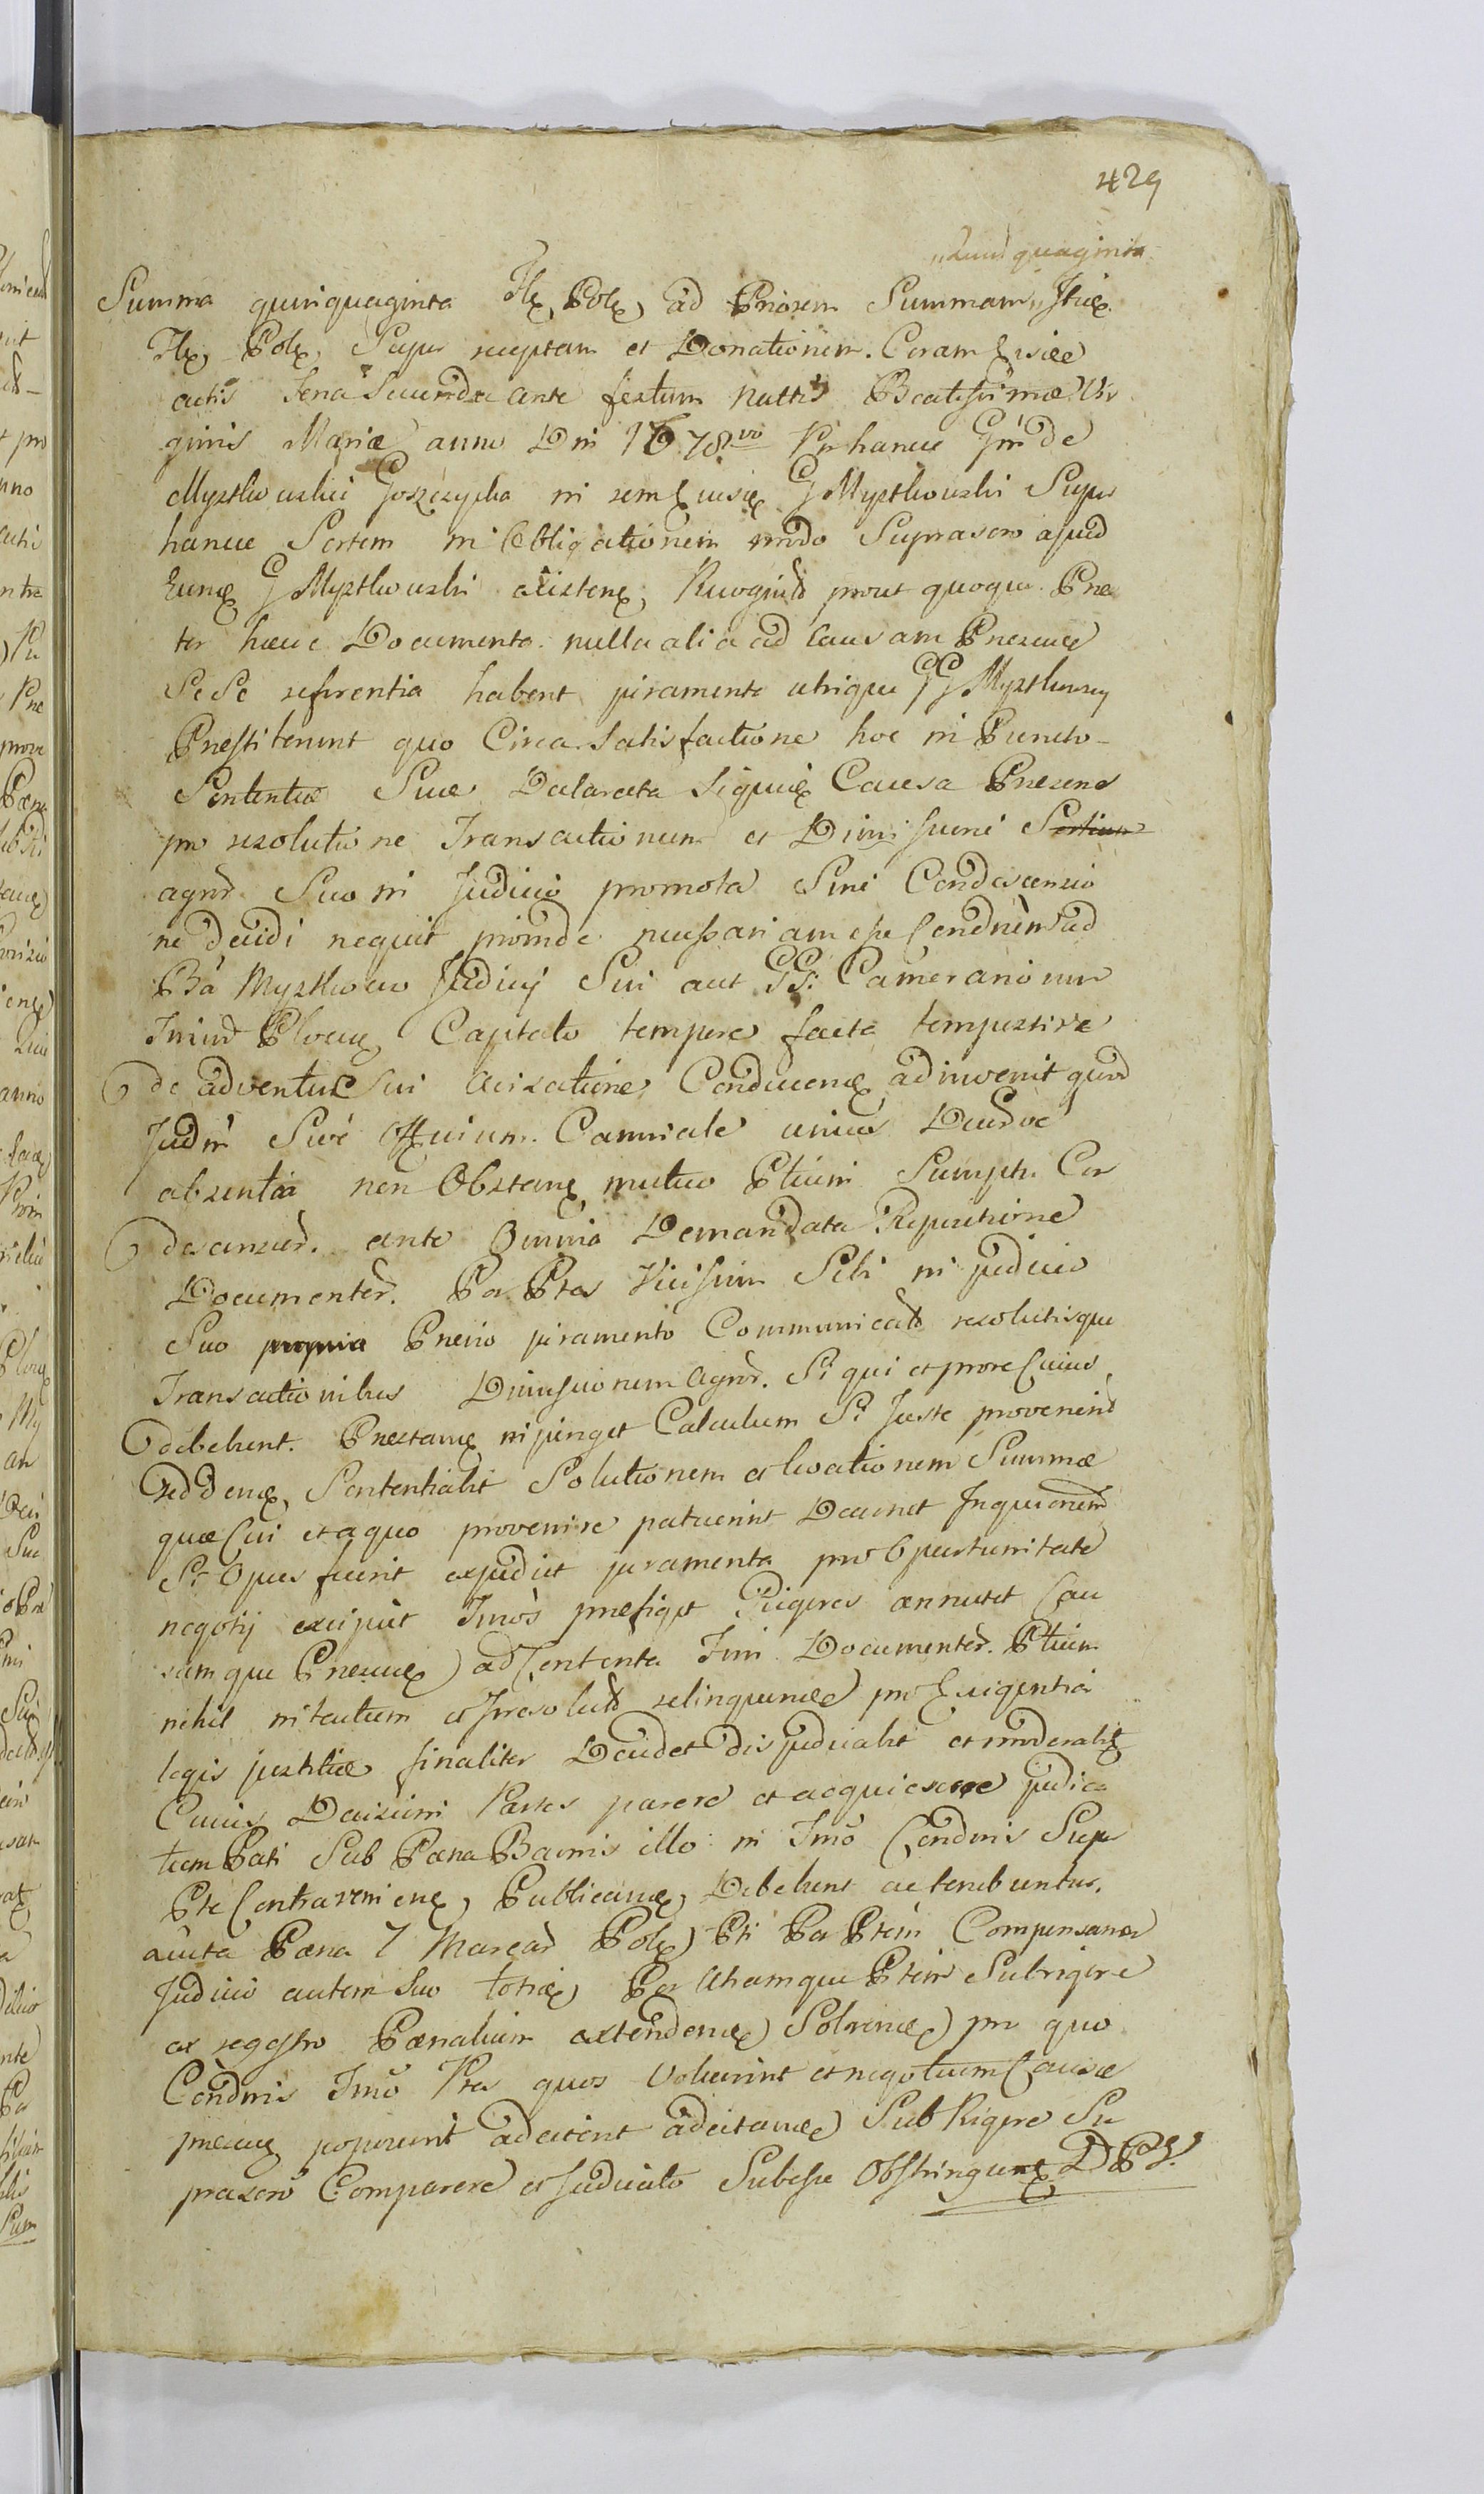 429
quinquaginta
Summa quinquaginta Flx Polx ad Priorem Summam
Flx Polx Super receptam et Donationem. Coram
actis Feria Secunda ante festum Nattis Beatissimæ Vir
ginis Mariæ anno Dni 1678vo Per hance Gm de
Mysłkowski in rem G Mysłkowski Super
hance Sortem in Obligationem modo Suprascro apud
Eund G Mysłkowski existenx, prout quoque Præ
ter hæcce Documenta nulla alia ad Causam Præsenx
Se Se referentia habent juramenta utrique GG Mysłkowscy
Præstiterunt quo Circa Satisfactione hoc in Puncto
Sententiæ Suæ Declarata Siquid Causa Præsens
pro resolutione Transactionum et Dimissioni Sortium
agror Suo in Judicio promota Sine Condescensio
ne decidi nequit proinde necessariam esse Condnem ad
Bă Mysłkowo Judicij Sui aut GG: Camerariorum
Trium Plocenx Captato tempore facta tempestive
de adventu Sui Avisatione, Conducenx adinvenit quod
Judm Sive Officium Camriale unius Duorve
absentia non Obstanx mutuo Ptium Sumptu Con
descensur. ante Omnia Demandata Repositione
Documentor. Per Ptes Vicissim Sibi in judicio
Suo Prævio juramento Communicator resolutisque
Transactionibus Dimissionum Agror. Si qui et pro re Cuius
debebunt. Præstanx injunget Calculum Si Juste provenient
reddenx, Sententiabit Solutionem et levationem Summæ
quæ Cui et a quo provenire potuerint Decernet Inquisitionem
Si Opus fuerit expediet juramenta pro Opportunitate
negotij excipiet Tmos præfiget Rigores annutet Cau
samque Præsenx ad Contenta Tmi Documentor. Ptium
nihil intactum et Irresolutum relinquendo pro Exigentia
legis justitiæ finaliter Decidet disjudicabit et moderabit
Cuius Decisioni Partes parere et acquiescere judica
tum Pati Sub Pæna Bannis illo in Tmo Condnis Super
Pte Contravenienx, Publicanx, Debebunt ac tenebuntur.
aucta Pæna 7 Marcar Polx Pti Per Ptem Compensanda
Judicio autem Suo toties Per Utramque Ptem Subrigore
ex regestro Pænalium extendenx Solvenx pro quo
Condnis Tmo Ptes quos Voluerint et negotium Causæ
præsenx poposcerit adcitent adcitanx Sub Rigore Su
prascro Comparere et Judicato Subesse Obstringunx DPV.